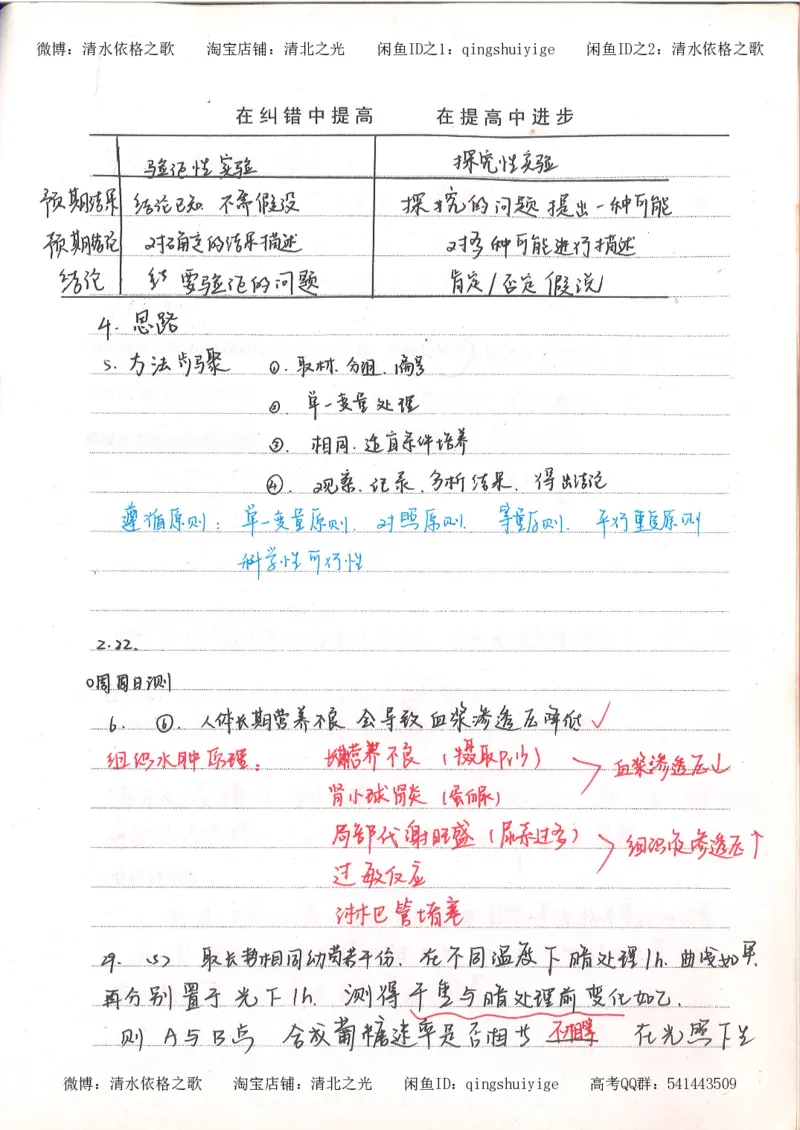 微博：清水依格之歌 淘宝店铺：清北之光 闲鱼ID之1：qingshuiyige 闲鱼ID之2：清水依格之歌
在纠错中提高 在提高中进步
验证性实验 探究性实验
预期结果 结论已知 不需假设 探究的问题 提出一种可能
预期结论 对确定的结果描述 对多种可能进行描述
结论 要验证的问题 肯定/否定 假说
4. 思路
5. 方法步骤 ①. 取材. 分组. 编号
②. 单一变量处理
③. 相同. 适宜条件培养
④. 观察. 记录. 分析结果. 得出结论
遵循原则： 单一变量原则. 对照原则. 等量原则. 平行重复原则
科学性 可行性
2.22.
周周日测
6. ⑥. 人体长期营养不良 会导致血浆渗透压降低 ✓
组织水肿原理： 营养不良 (摄取Pr少) 血浆渗透压↓
肾小球肾炎 (蛋白尿)
局部代谢旺盛 (尿素过多) 组织液渗透压↑
过敏反应
淋巴管堵塞
29. (5) 取长势相同幼苗若干份. 在不同温度下暗处理1h. 曲线如甲.
再分别置于光下1h. 测得干重与暗处理前变化如乙.
则 A与B点 合成葡萄糖速率是否相等 不相等 在光照下
微博：清水依格之歌 淘宝店铺：清北之光 闲鱼ID：qingshuiyige 高考QQ群：541443509